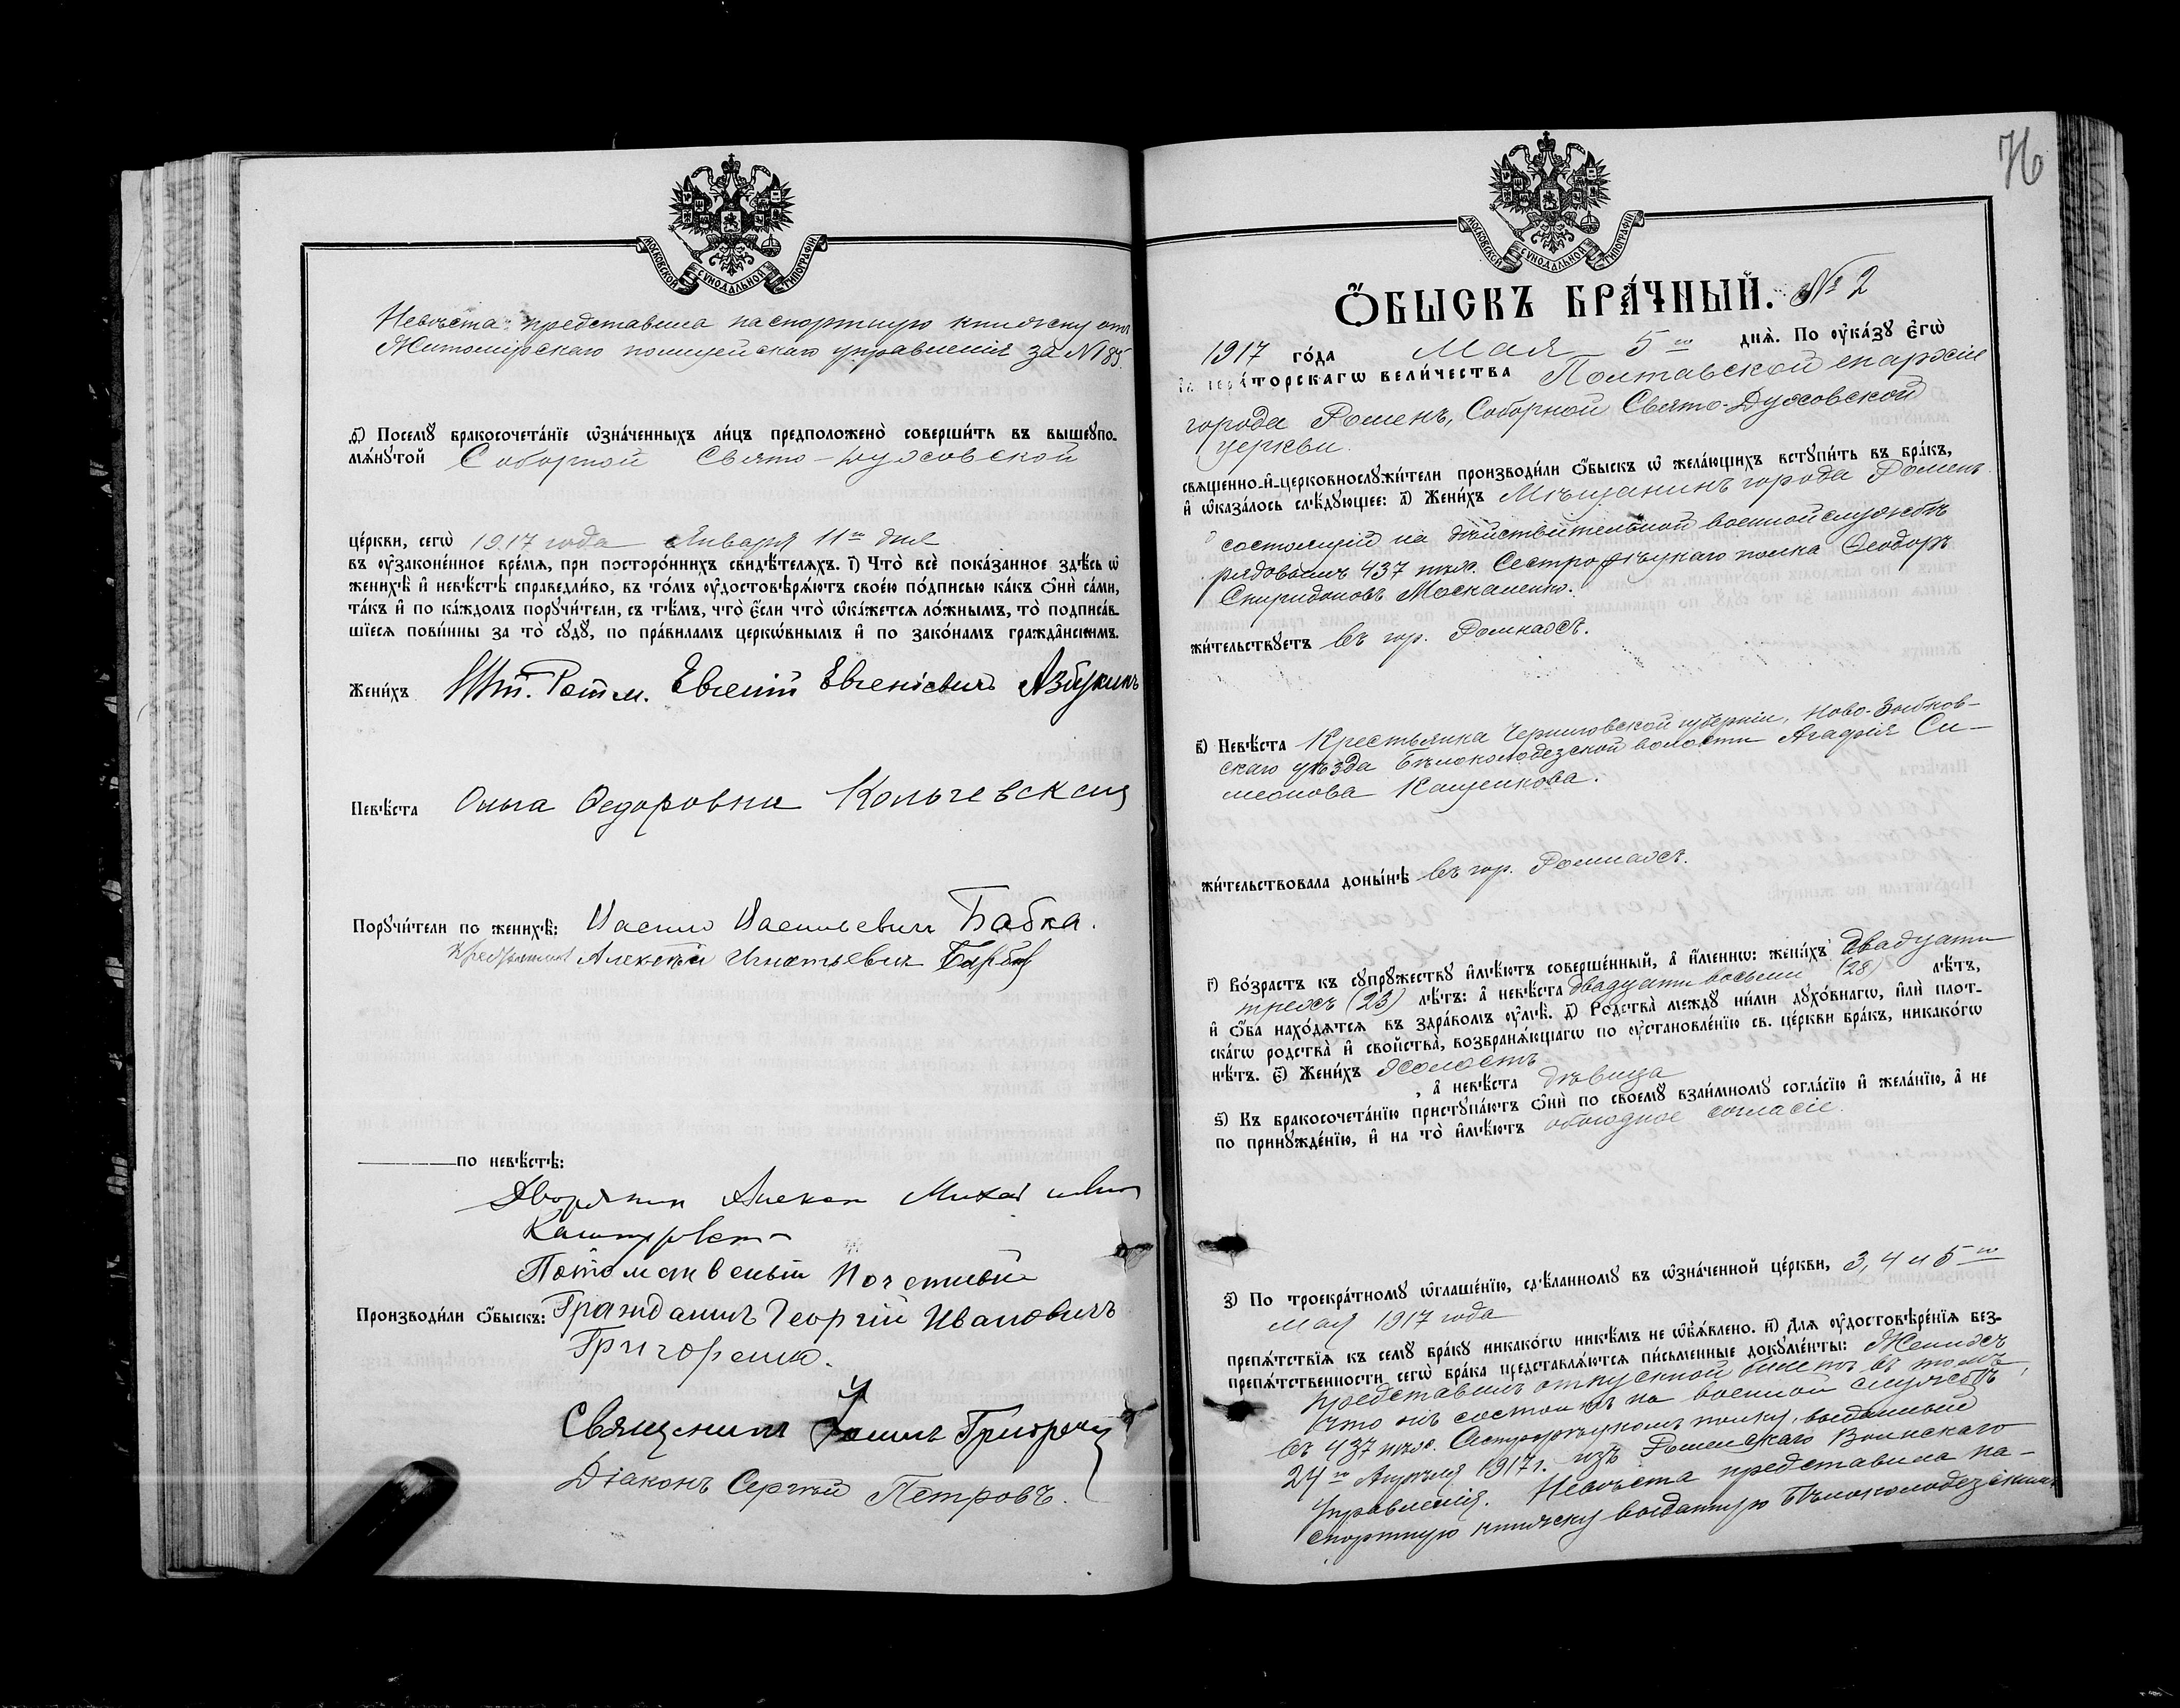 МОСКОВСКОЙ СѴНОДАЛЬНОЙ ТИПОГРАФІИ
Невѣста представила паспортную книжку отъ
Житомірскаго полицейскаго управленія за № 185.
ѳ҃) Посемꙋ̀ бракосочета́нїе ѡ҆зна́ченныхъ ли́цъ предположено̀ соверши́ть въ вышеꙋпо-
мѧ́нꙋтой Соборной Свято-Духовской
це́ркви, сегѡ̀ 1917 года Января 11го дня
въ ѹ҆зако́ненное вре́мѧ, при посторо́ннихъ свидѣ́телѧхъ. і҃) Что̀ всѐ пока́занное здѣ́сь ѡ҆
женихѣ̀ и҆ невѣ́стѣ справедли́во, въ то́мъ ѹ҆достовѣрѧ́ютъ свое́ю по́дписью ка́къ ѻ҆нѝ са́ми,
та́къ и҆ по ка́ждомъ порꙋчи́тели, съ тѣ́мъ, что̀ є҆́сли что̀ ѡ҆ка́жетсѧ ло́жнымъ, то̀ подписа́в-
шїесѧ пови́нны за то̀ сꙋдꙋ̀, по пра́виламъ церко́внымъ и҆ по зако́намъ гражда́нскимъ.
Жени́хъ Шт. Ротм. Евгеній Евгеніевичъ Азбукинъ
Невѣ́ста Ольга Ѳедоровна Кольчевская
Порꙋчи́тели по женихѣ̀: Василій Васильевичъ Бабка.
Алексѣй Игнатьевич
по невѣ́стѣ:
Дворянин Алекса Михайлович
Потомственный Почетный
Производи́ли ѻ҆́быскъ: Гражданинъ Георгій Ивановичъ
Григоренко.
Священникъ Іоаннъ
Діаконъ Сергѣй Петровъ.
76
МОСКОВСКОЙ СѴНОДАЛЬНОЙ ТИПОГРАФІИ
Ѻ҆́БЫСКЪ БРА́ЧНЫЙ. № 2
1917 го́да Мая 5го днѧ̀. По ѹ҆ка́зꙋ є҆гѡ̀
и҆мпера́торскагѡ вели́чества Полтавской епархіи
города Роменъ, Соборной Свято-Духовской
церкви
свѧщенно-и҆-церковнослꙋжи́тели производи́ли ѻ҆́быскъ ѡ҆ жела́ющихъ встꙋпи́ть въ бра́къ,
и҆ ѡ҆каза́лось слѣ́дꙋющее: а҃) Жени́хъ Мѣщанинъ города Роменъ
состоящій на дѣйствительной военной службѣ
рядовымъ 437 пѣх. Сестрорѣцкаго полка Ѳеодоръ
Спиридоновъ Москаленко.
жи́тельствꙋетъ въ гор. Ромнахъ.
в҃) Невѣ́ста Крестьянка Черниговской губерніи, Ново-Зыбков-
скаго уѣзда Бѣлоколодезской волости Агафія Си-
меонова Кащенкова.
жи́тельствовала доны́нѣ въ гор. Ромнахъ.
г҃) Во́зрастъ къ сꙋпрꙋ́жествꙋ и҆мѣ́ютъ соверше́нный, а҆ и҆́меннѡ: жени́хъ двадцати
трехъ (23) лѣ́тъ: а҆ невѣ́ста двадцати восьми (28) лѣ́тъ,
и҆ ѻ҆́ба нахо́дѧтсѧ въ здра́вомъ ѹ҆мѣ̀. д҃) Родства̀ междꙋ ни́ми дꙋхо́внагѡ, и҆лѝ плот-
ска́гѡ родства̀ и҆ сво́йства̀, возбранѧ́ющагѡ по ѹ҆становле́нїю св. це́ркви бра́къ, никако́гѡ
нѣ́тъ. є҃) Жени́хъ холостъ
, а҆ невѣ́ста дѣвица
ѕ҃) Къ бракосочета́нїю пристꙋпа́ютъ ѻ҆нѝ по своемꙋ̀ взаи́мномꙋ согла́сїю и҆ жела́нїю, а҆ не
по принꙋжде́нїю, и҆ на то̀ и҆мѣ́ютъ обоюдное согласіе.
з҃) По троекра́тномꙋ ѡ҆глаше́нїю, сдѣ́ланномꙋ въ ѡ҆зна́ченной це́ркви, 3, 4 и 5го
мая 1917 года
препѧ́тствїѧ къ семꙋ̀ бра́кꙋ никако́гѡ никѣ́мъ не ѡ҆б̾ѧ́влено. и҃) Длѧ ѹ҆достовѣре́нїѧ без-
препѧ́тственности сегѡ̀ бра́ка представлѧ́ютсѧ пи́сьменные докꙋме́нты: Женихъ
представилъ отпускной билетъ въ томъ,
что онъ состоитъ на военной службѣ
въ 437 пѣх. Сестрорѣцкомъ полку, выданный
24го Апрѣля 1917 г. изъ Роменскаго Воинскаго
Управленія. Невѣста представила па-
спортную книжку выданную Бѣлоколодезскимъ